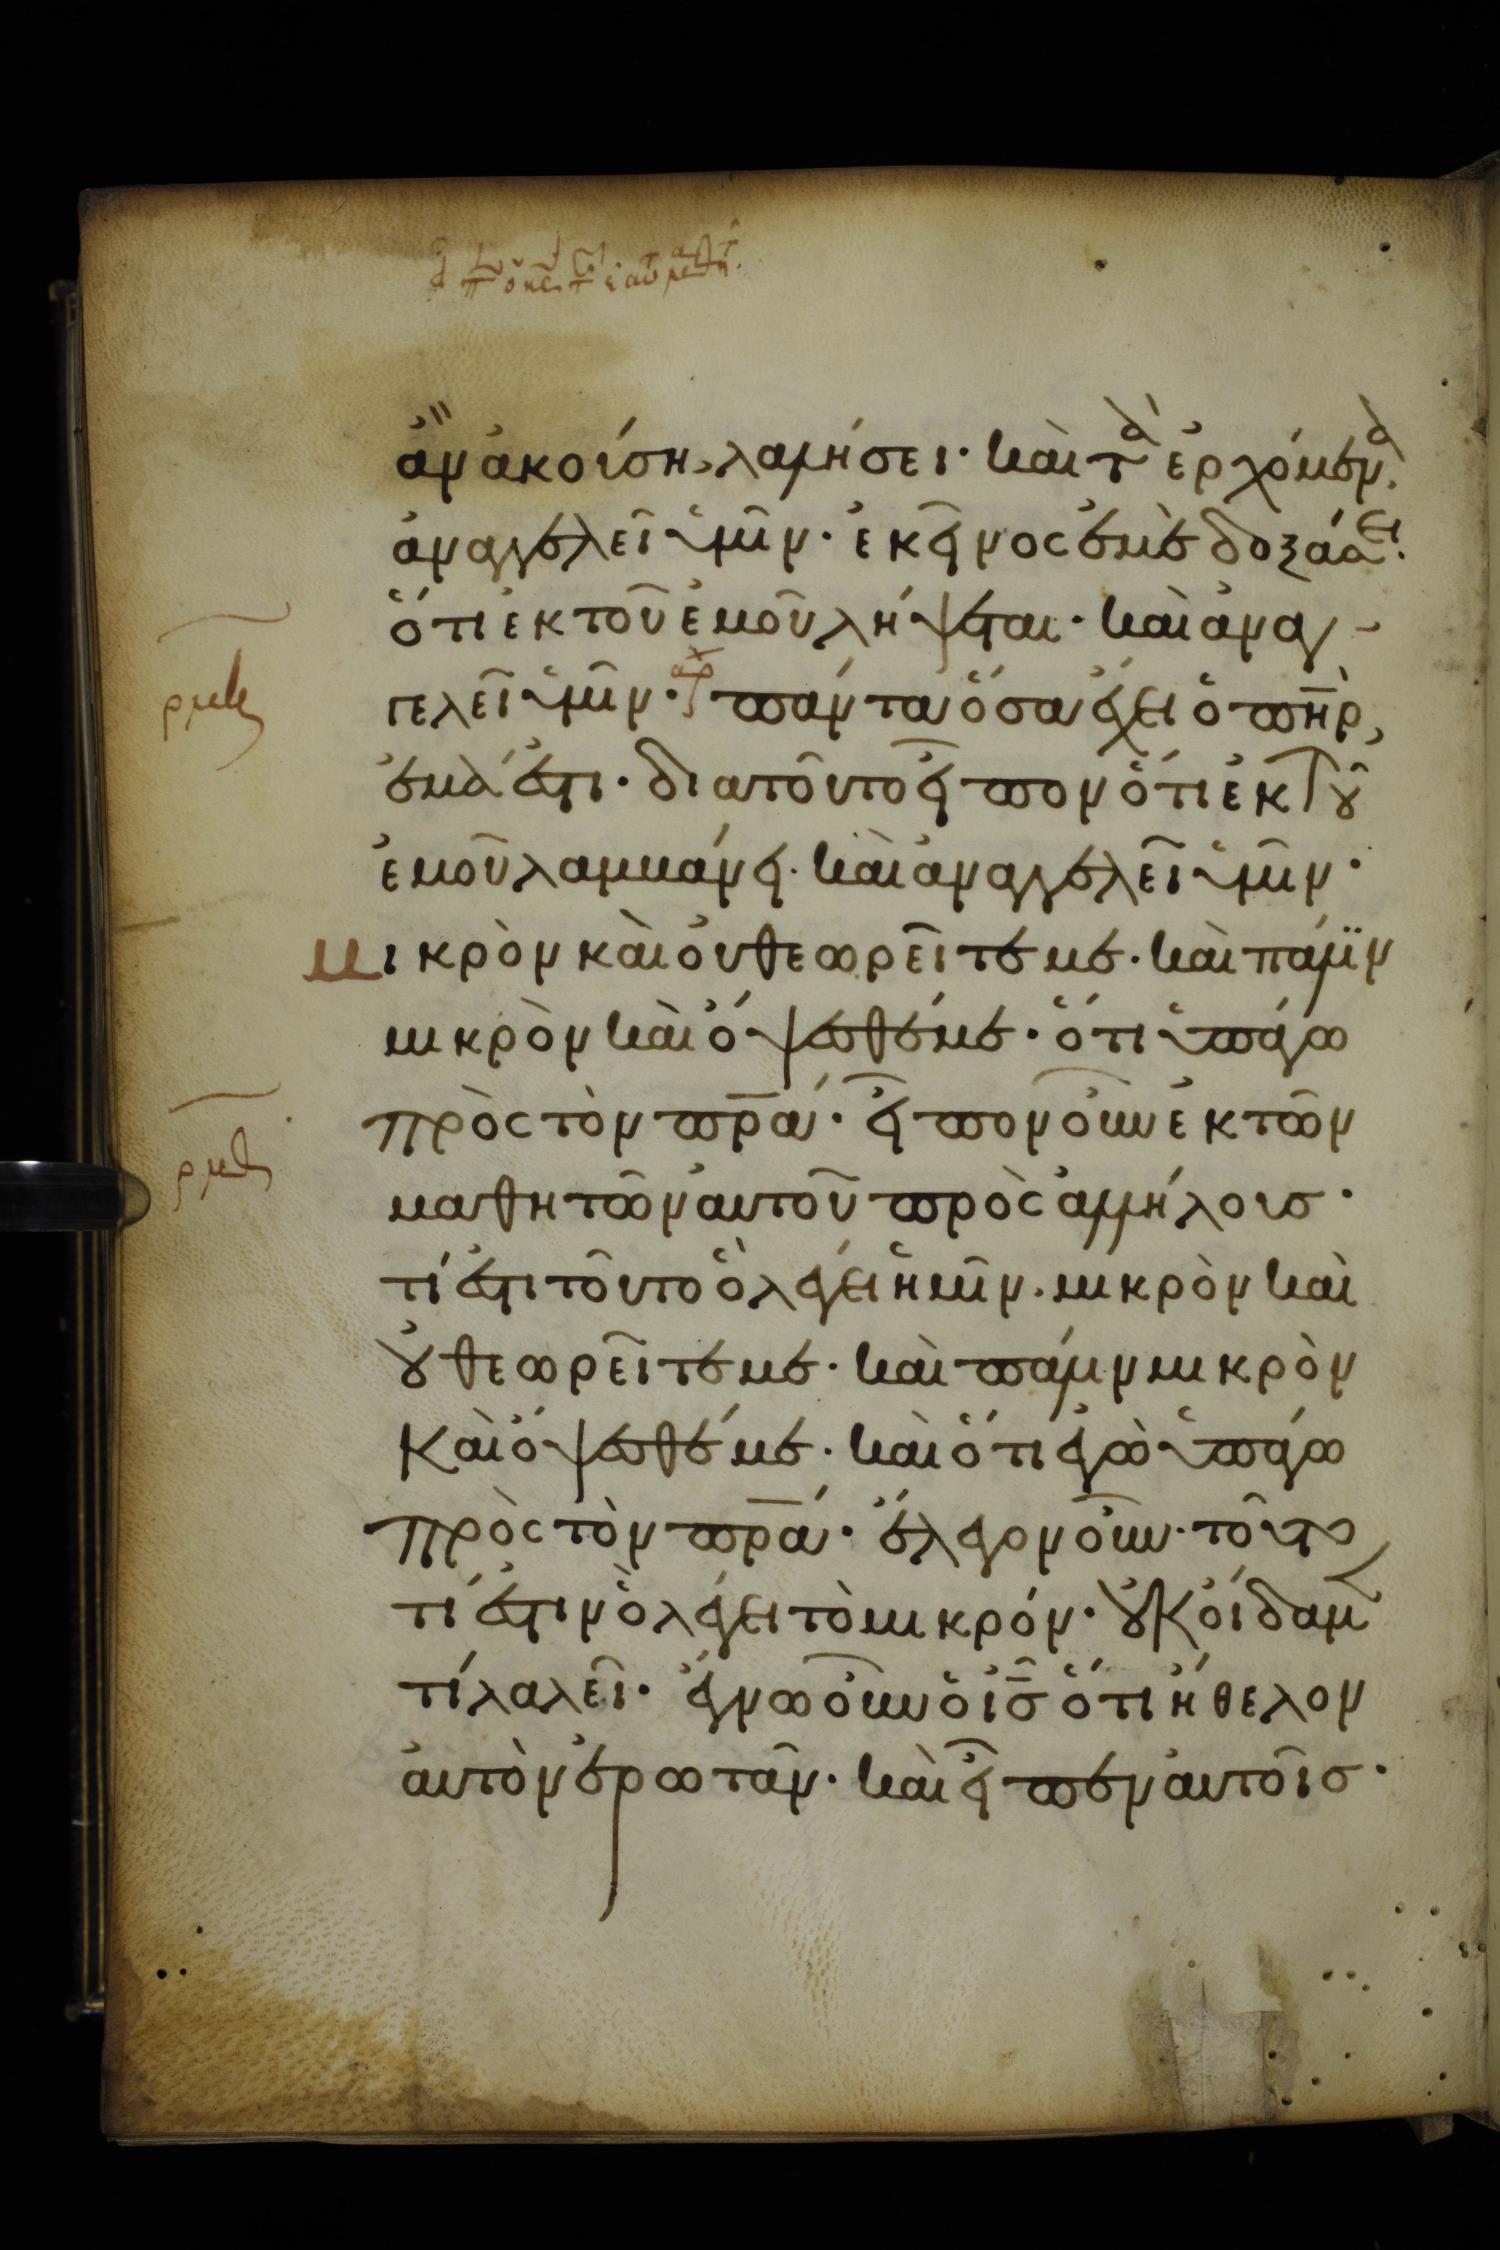 ἂν ἀκούση, λαλήσει· καὶ τὰ ἐρχόμενα.
ἀναγγελεῖ ὑμῖν· ἐκεῖνος ἐμὲ δοξάσει.
ὅτι ἐκ τοῦ ἐμοῦ λήψεται· καὶ ἀναγ-
γελεῖ ὑμῖν· πάντα ὅσα ἔχει ὁ πηρ,
ἐμά ἐστι· διὰ τοῦτο εἶπον ὅτι ἐκ τοῦ
ἐμοῦ λαμβάνει· καὶ ἀναγγελεῖ ὑμῖν·
ρμζ
Μικρὸν καὶ οὐ θεωρεῖτέ με· καὶ πάλιν
μικρὸν καὶ ὄψεσθέ με· ὅτι ὑπάγω
πρὸς τὸν πρα· εἶπον οὖν ἐκ τῶν
μαθητῶν αὐτοῦ πρὸς ἀλλήλους·
τί ἐστι τοῦτο ὃ λέγει ἡμῖν· μικρὸν καὶ
οὐ θεωρεῖτέ με· καὶ πάλιν μικρὸν
καὶ ὄψεσθέ με· καὶ ὅτι ἐγὼ ὑπάγω
πρὸς τὸν πρα· ἔλεγον οὖν· τοῦτο
τί ἐστιν ὃ λέγει τὸ μικρόν· οὐκ οἴδαμεν
τί λαλεῖ· ἔγνω οὖν ὁ ις ὅτι ἤθελον
αὐτὸν ἐρωτᾶν· καὶ εἶπεν αὐτοῖς·